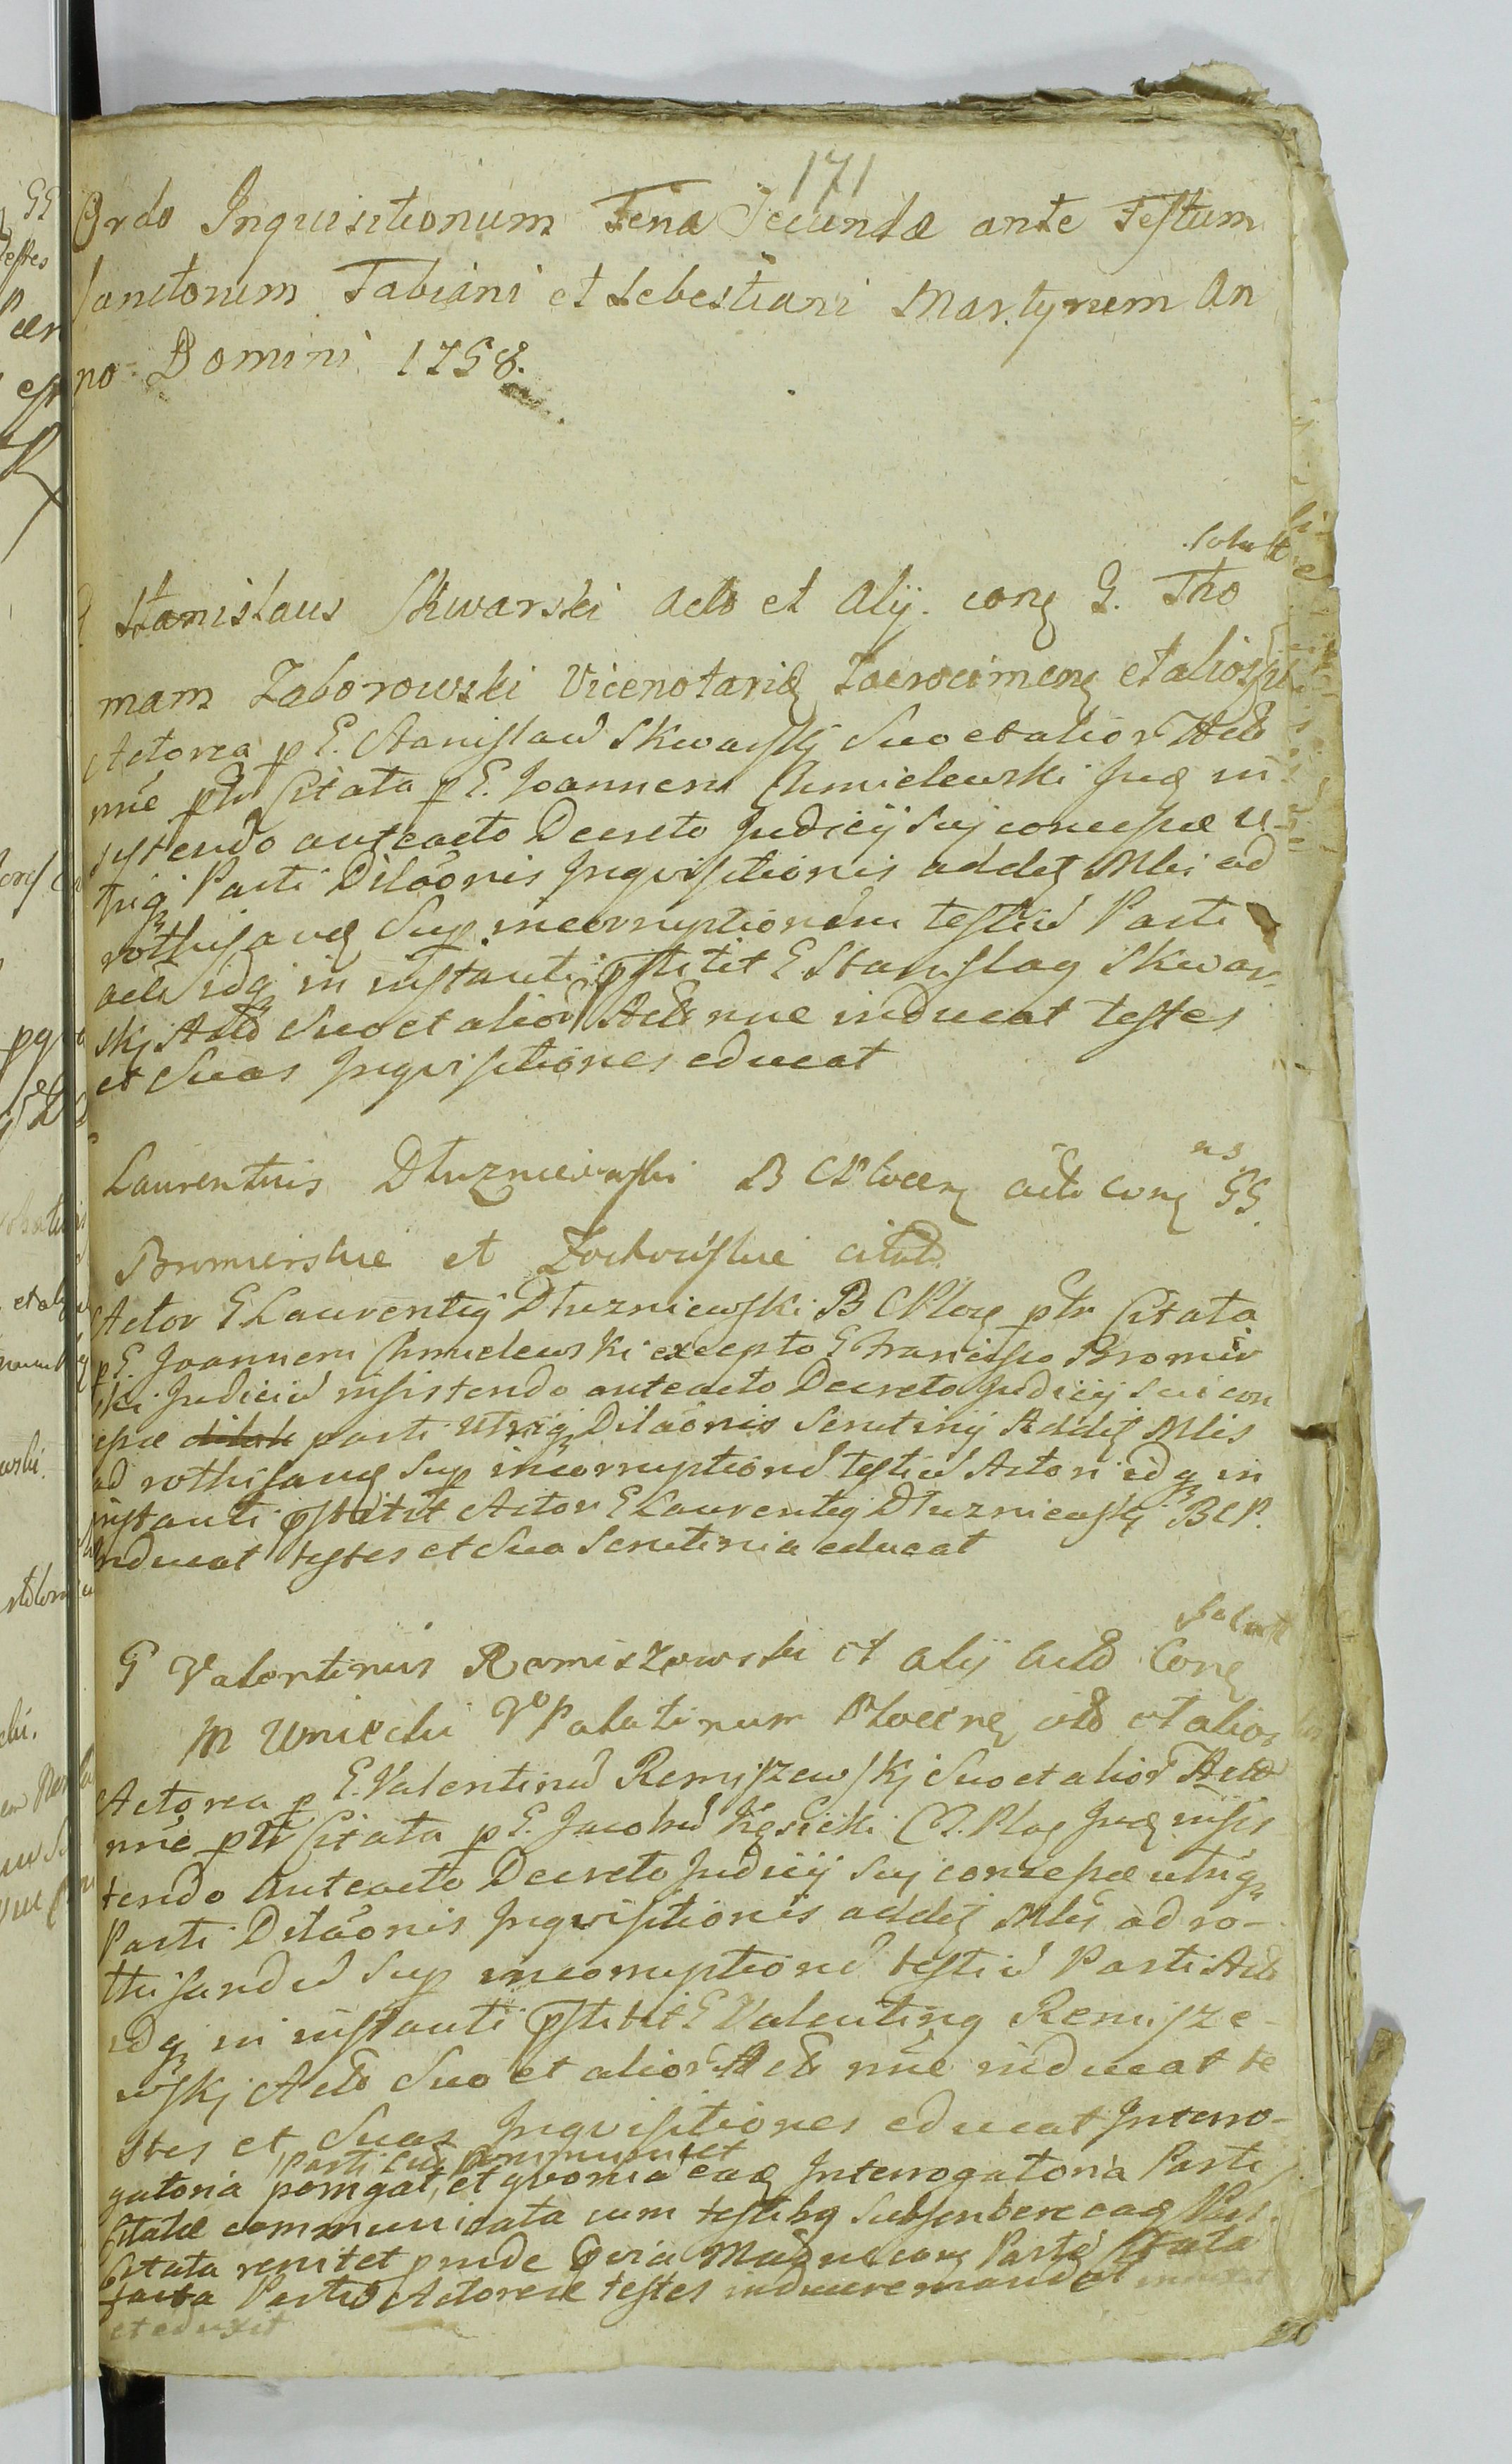 171
Ordo Inquisitionum Feria Secunda ante Festum
Sanctorum Fabiani et Sebestiani Martyrum An
no Domini 1758.
G Stanislaus Skwarski Acto et Alij. con G. Tho
mam Zaborowski Vicenotariū et alios
Actorea p G. Stanislaū Skwarskj Suo et alior Acto
nne ptr Citata p G. Joannem Chmielewski Jud in
sistendo anteacto Decreto Judicij sui concessae u-
triq Parti Dilaōnis Inquisitionis addet Mli ad
rothisand Sup incorruptionem testiū Parti
acto idq in instanti pstitit G Stanislaq Skwar-
skj Acto Suo et alior Acto nne inducat testes
et Suas Inquisitiones educat
Laurentius Dłuzniewski B C Plocen acto con GG.
Bromierskie et citat
Actor G Laurentiq Dłuzniewski B C Ploc ptr Citata
p G. Joannem Chmielewski excepto G Francisco Bromir
ski Judiciū insistendo anteacto Decreto Judicij sui con
cessae parti utriq Dilaōnis Scrutinij Addet Mlis
ad rothisand Sup incorruptionē testiū Actori idq in
instanti pstitit Actor G Laurentiq Dłuzniewskj B C P.
inducat testes et Sua Scrutinia educat
G Valentinus Remiszowski et alij acto Con
M Umiecki V Palatinum Plocen et alios
Actorea p G. Valentinū Remiszewskj Suo et alior Acto
nne ptr Citata p G. Jacobū Kęsicki C. Ploc Jud insis
tendo Anteacto Decreto Judicij sui concessae utriq
Parti Dilaōnis Inquisitionis addet Mlis ad ro-
thisandū Sup incorruptionē testiū Parti Acto
idq in instanti pstitit G Valentinq Remisze-
wskj Acto Suo et alior Acto nne inducat te
stes et Suas Inquisitiones educat Interro-
parti communicet
gatoria porrigat, et quoniā ead Interrogatoria Parti
Citatae communicata cum testibq Subscribere ead Par
Citata renitet proude quia con Parte Citata
facta Partis Actoreae testes inducere mandat induxit
et eduxit